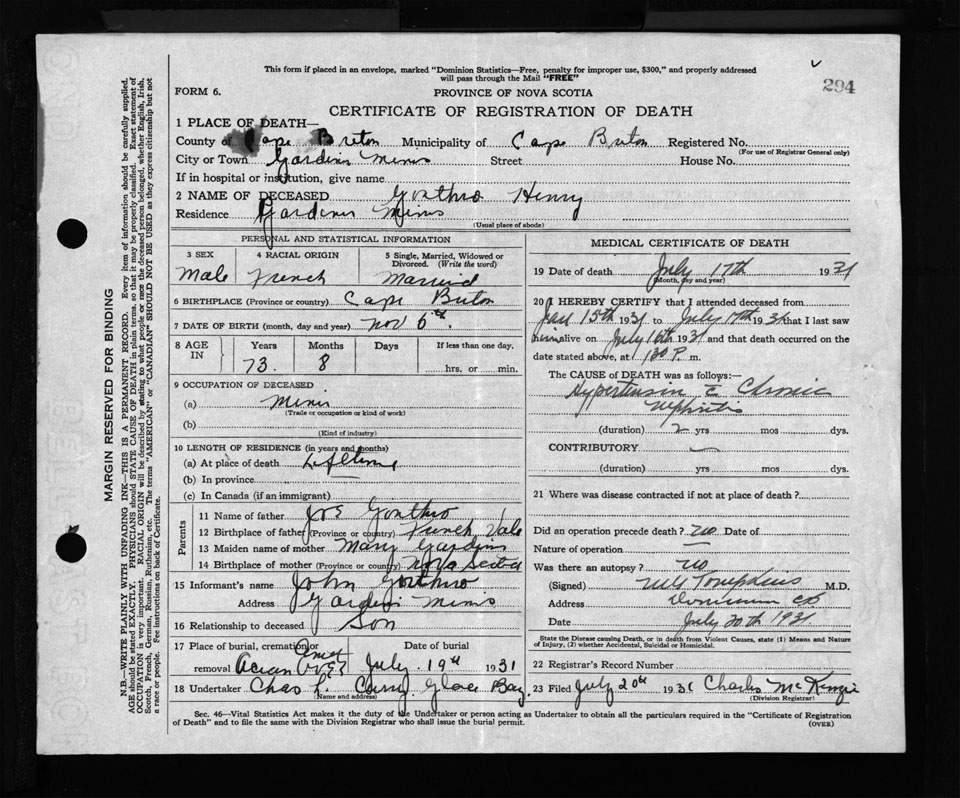 This form if placed in an envelope, marked "Dominion Statistics—Free, penalty for improper use, $300," and properly addressed
will pass through the Mail "FREE"
294
FORM 6.
PROVINCE OF NOVA SCOTIA
CERTIFICATE OF REGISTRATION OF DEATH
1 PLACE OF DEATH—
County of Cape Breton Municipality of Cape Breton Registered No.
(For use of Registrar General only)
City or Town Gardiner Mines Street House No.
If in hospital or institution, give name
2 NAME OF DECEASED Gonthro Henry
Residence Gardiner Mines
(Usual place of abode)
PERSONAL AND STATISTICAL INFORMATION
3 SEX 4 RACIAL ORIGIN 5 Single, Married, Widowed or Divorced. (Write the word)
Male French Married
6 BIRTHPLACE (Province or country) Cape Breton
7 DATE OF BIRTH (month, day and year) Nov 6th.
8 AGE IN Years Months Days If less than one day.
73. 8 hrs. or min.
9 OCCUPATION OF DECEASED
(a) Miner
(Trade or occupation or kind of work)
(b)
(Kind of industry)
10 LENGTH OF RESIDENCE (in years and months)
(a) At place of death Lifetime
(b) In province
(c) In Canada (if an immigrant)
Parents
11 Name of father Joe Gonthro
12 Birthplace of father (Province or country) French Vale
13 Maiden name of mother Mary Gardiner
14 Birthplace of mother (Province or country) Nova Scotia
15 Informant's name John Gonthro
Address Gardiner Mines
16 Relationship to deceased Son
17 Place of burial, cremation or removal Date of burial
July 19th 1931
18 Undertaker Chas L. Curry Glace Bay
(Name and address)
MEDICAL CERTIFICATE OF DEATH
19 Date of death July 17th 1931
(Month, day and year)
20 I HEREBY CERTIFY that I attended deceased from
15th 1931 to July 17th 1931 that I last saw
him alive on July 16th 1931 and that death occurred on the
date stated above, at 1 30 P. m.
The CAUSE of DEATH was as follows:—
Hypertension c̄ Chronic
Nephritis
(duration) 2 yrs mos dys.
CONTRIBUTORY
(duration) yrs mos dys.
21 Where was disease contracted if not at place of death?
Did an operation precede death? no Date of
Nature of operation
Was there an autopsy? no
(Signed) Tompkins M.D.
Address Dominion CB
Date July 20th 1931
State the Disease causing Death, or in death from Violent Causes, state (1) Means and Nature
of Injury, (2) whether Accidental, Suicidal or Homicidal.
22 Registrar's Record Number
23 Filed July 20th 1931 Charles McKenzie
(Division Registrar)
Sec. 46—Vital Statistics Act makes it the duty of the Undertaker or person acting as Undertaker to obtain all the particulars required in the "Certificate of Registration
of Death" and to file the same with the Division Registrar who shall issue the burial permit.
(OVER)
MARGIN RESERVED FOR BINDING
N.B.—WRITE PLAINLY WITH UNFADING INK—THIS IS A PERMANENT RECORD. Every item of information should be carefully supplied.
AGE should be stated EXACTLY. PHYSICIANS should STATE CAUSE OF DEATH in plain terms, so that it may be properly classified. Exact statement of
OCCUPATION is very important. RACIAL ORIGIN will be described by stating to what people or race the deceased person belonged, whether English, Irish,
Scotch, French, German, Russian, Ruthenian, etc. The terms "AMERICAN" or "CANADIAN" SHOULD NOT BE USED as they express citizenship but not
a race or people. See instructions on back of Certificate.